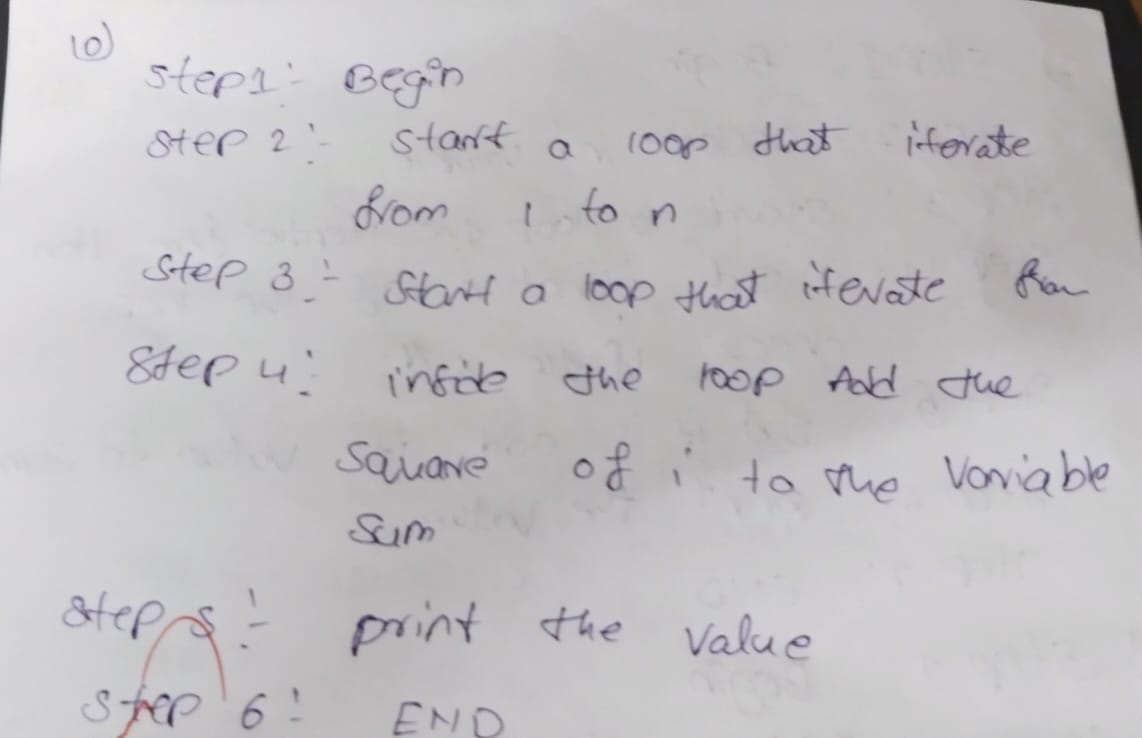 10)
Step1:- Begin
Step 2:- Start a loop that iterate
from 1 to n
Step 3:- Start a loop that iterate from
Step 4:- inside the loop Add the
Square of i to the variable
Sum
Step 5:- print the value
Step 6: END